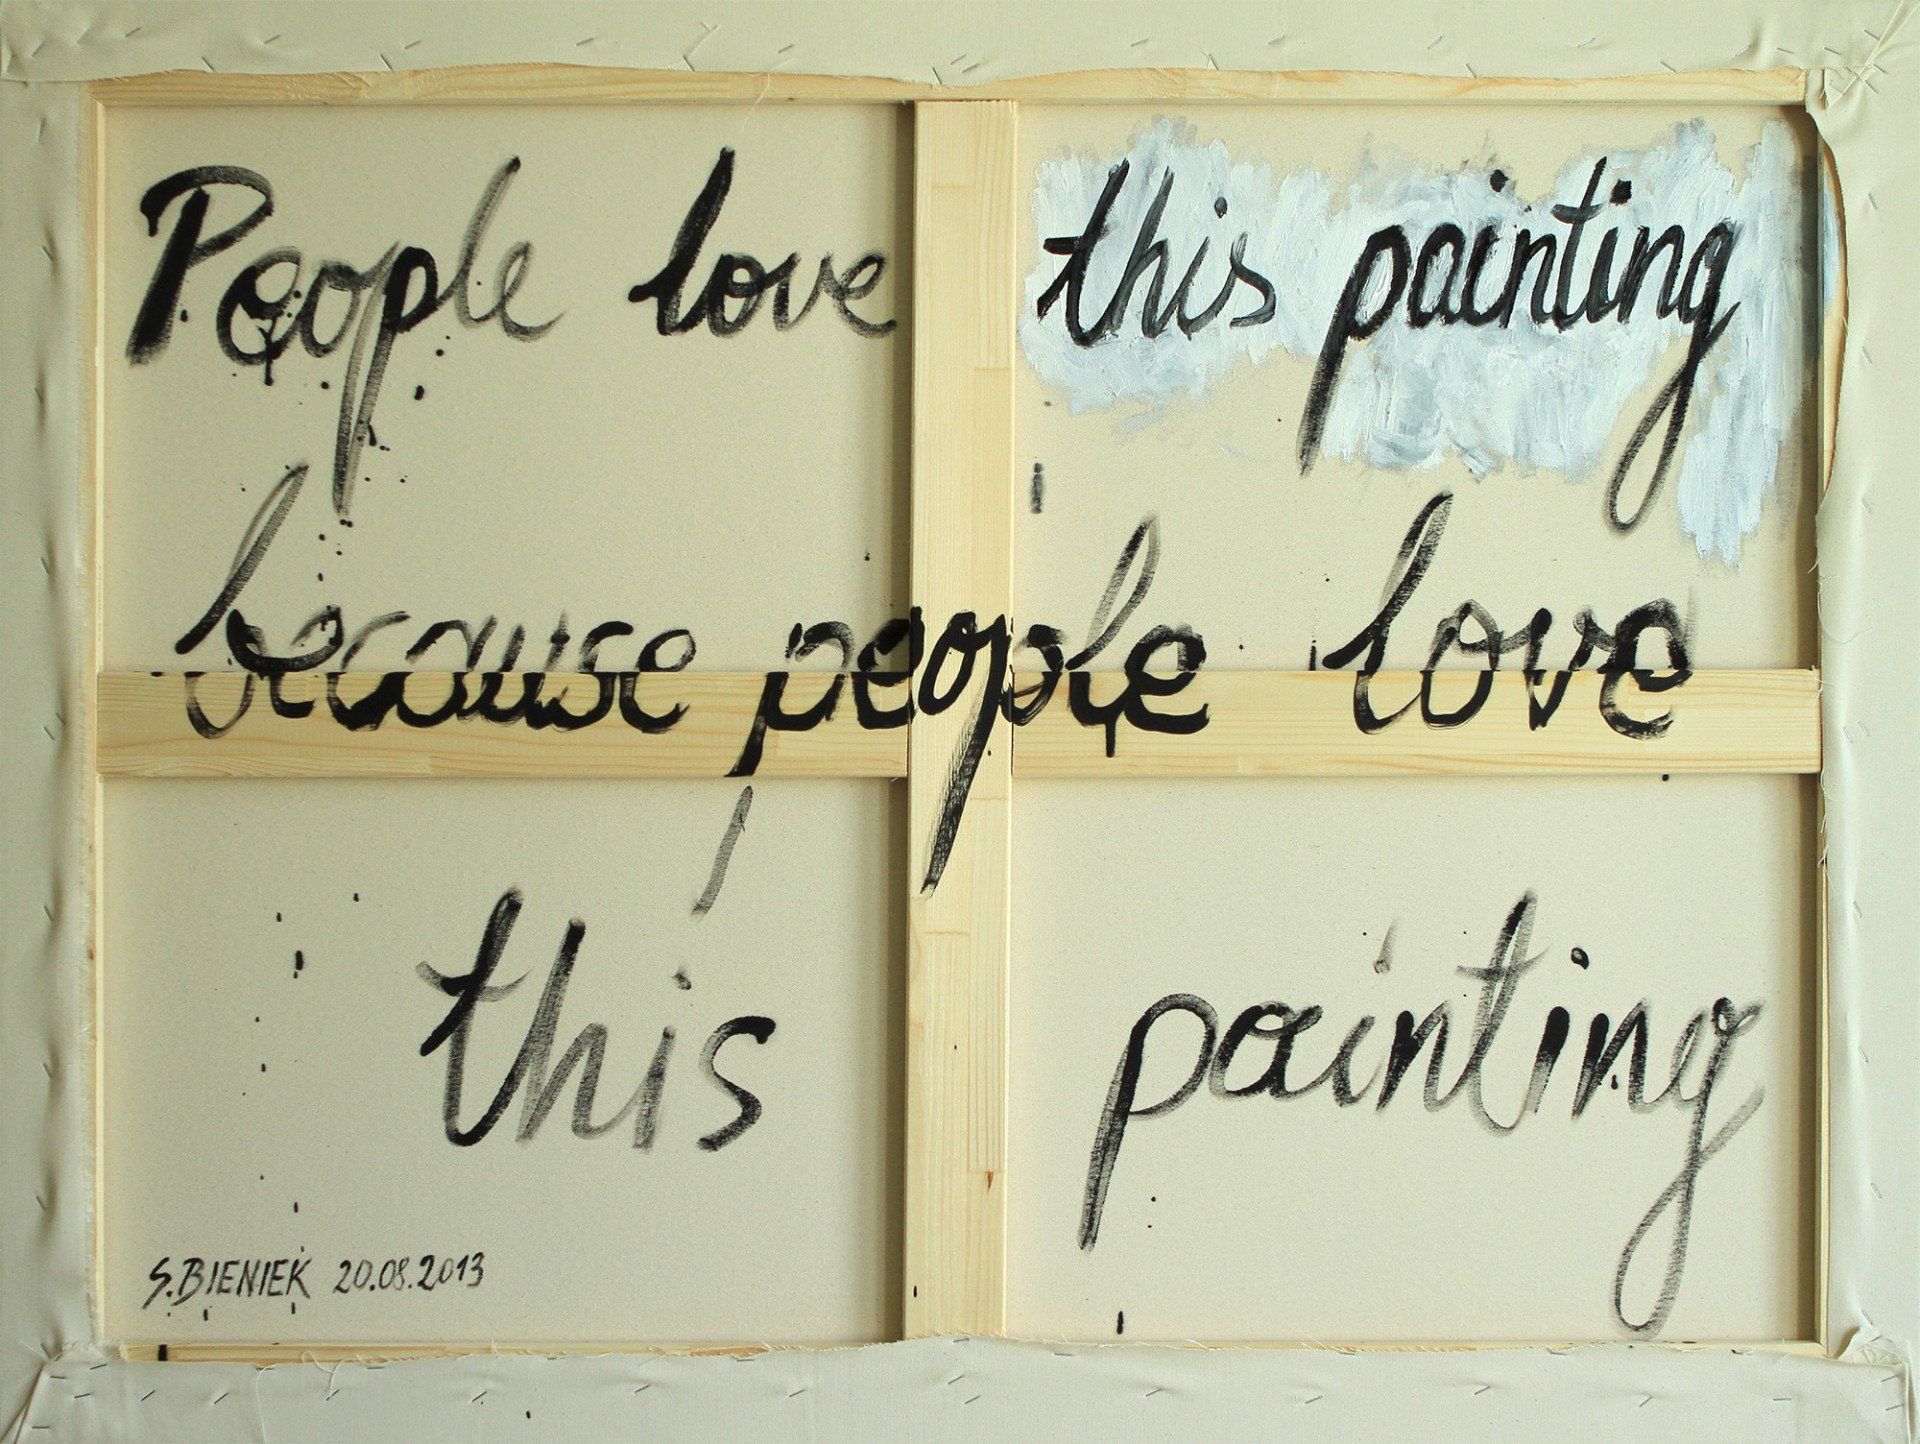 People love this painting
because people love
this painting
S. BIENIEK 20.08.2013